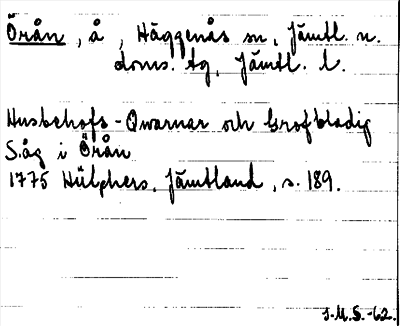 Örån, å, Häggenås sn, Jämtl. n.
doms. tg, Jämtl. l.
Husbehofs-Qwarnar och Grofbladig
Såg i Örån
1775 Hülphers, Jämtland, s. 189.
J.M.S.-62.